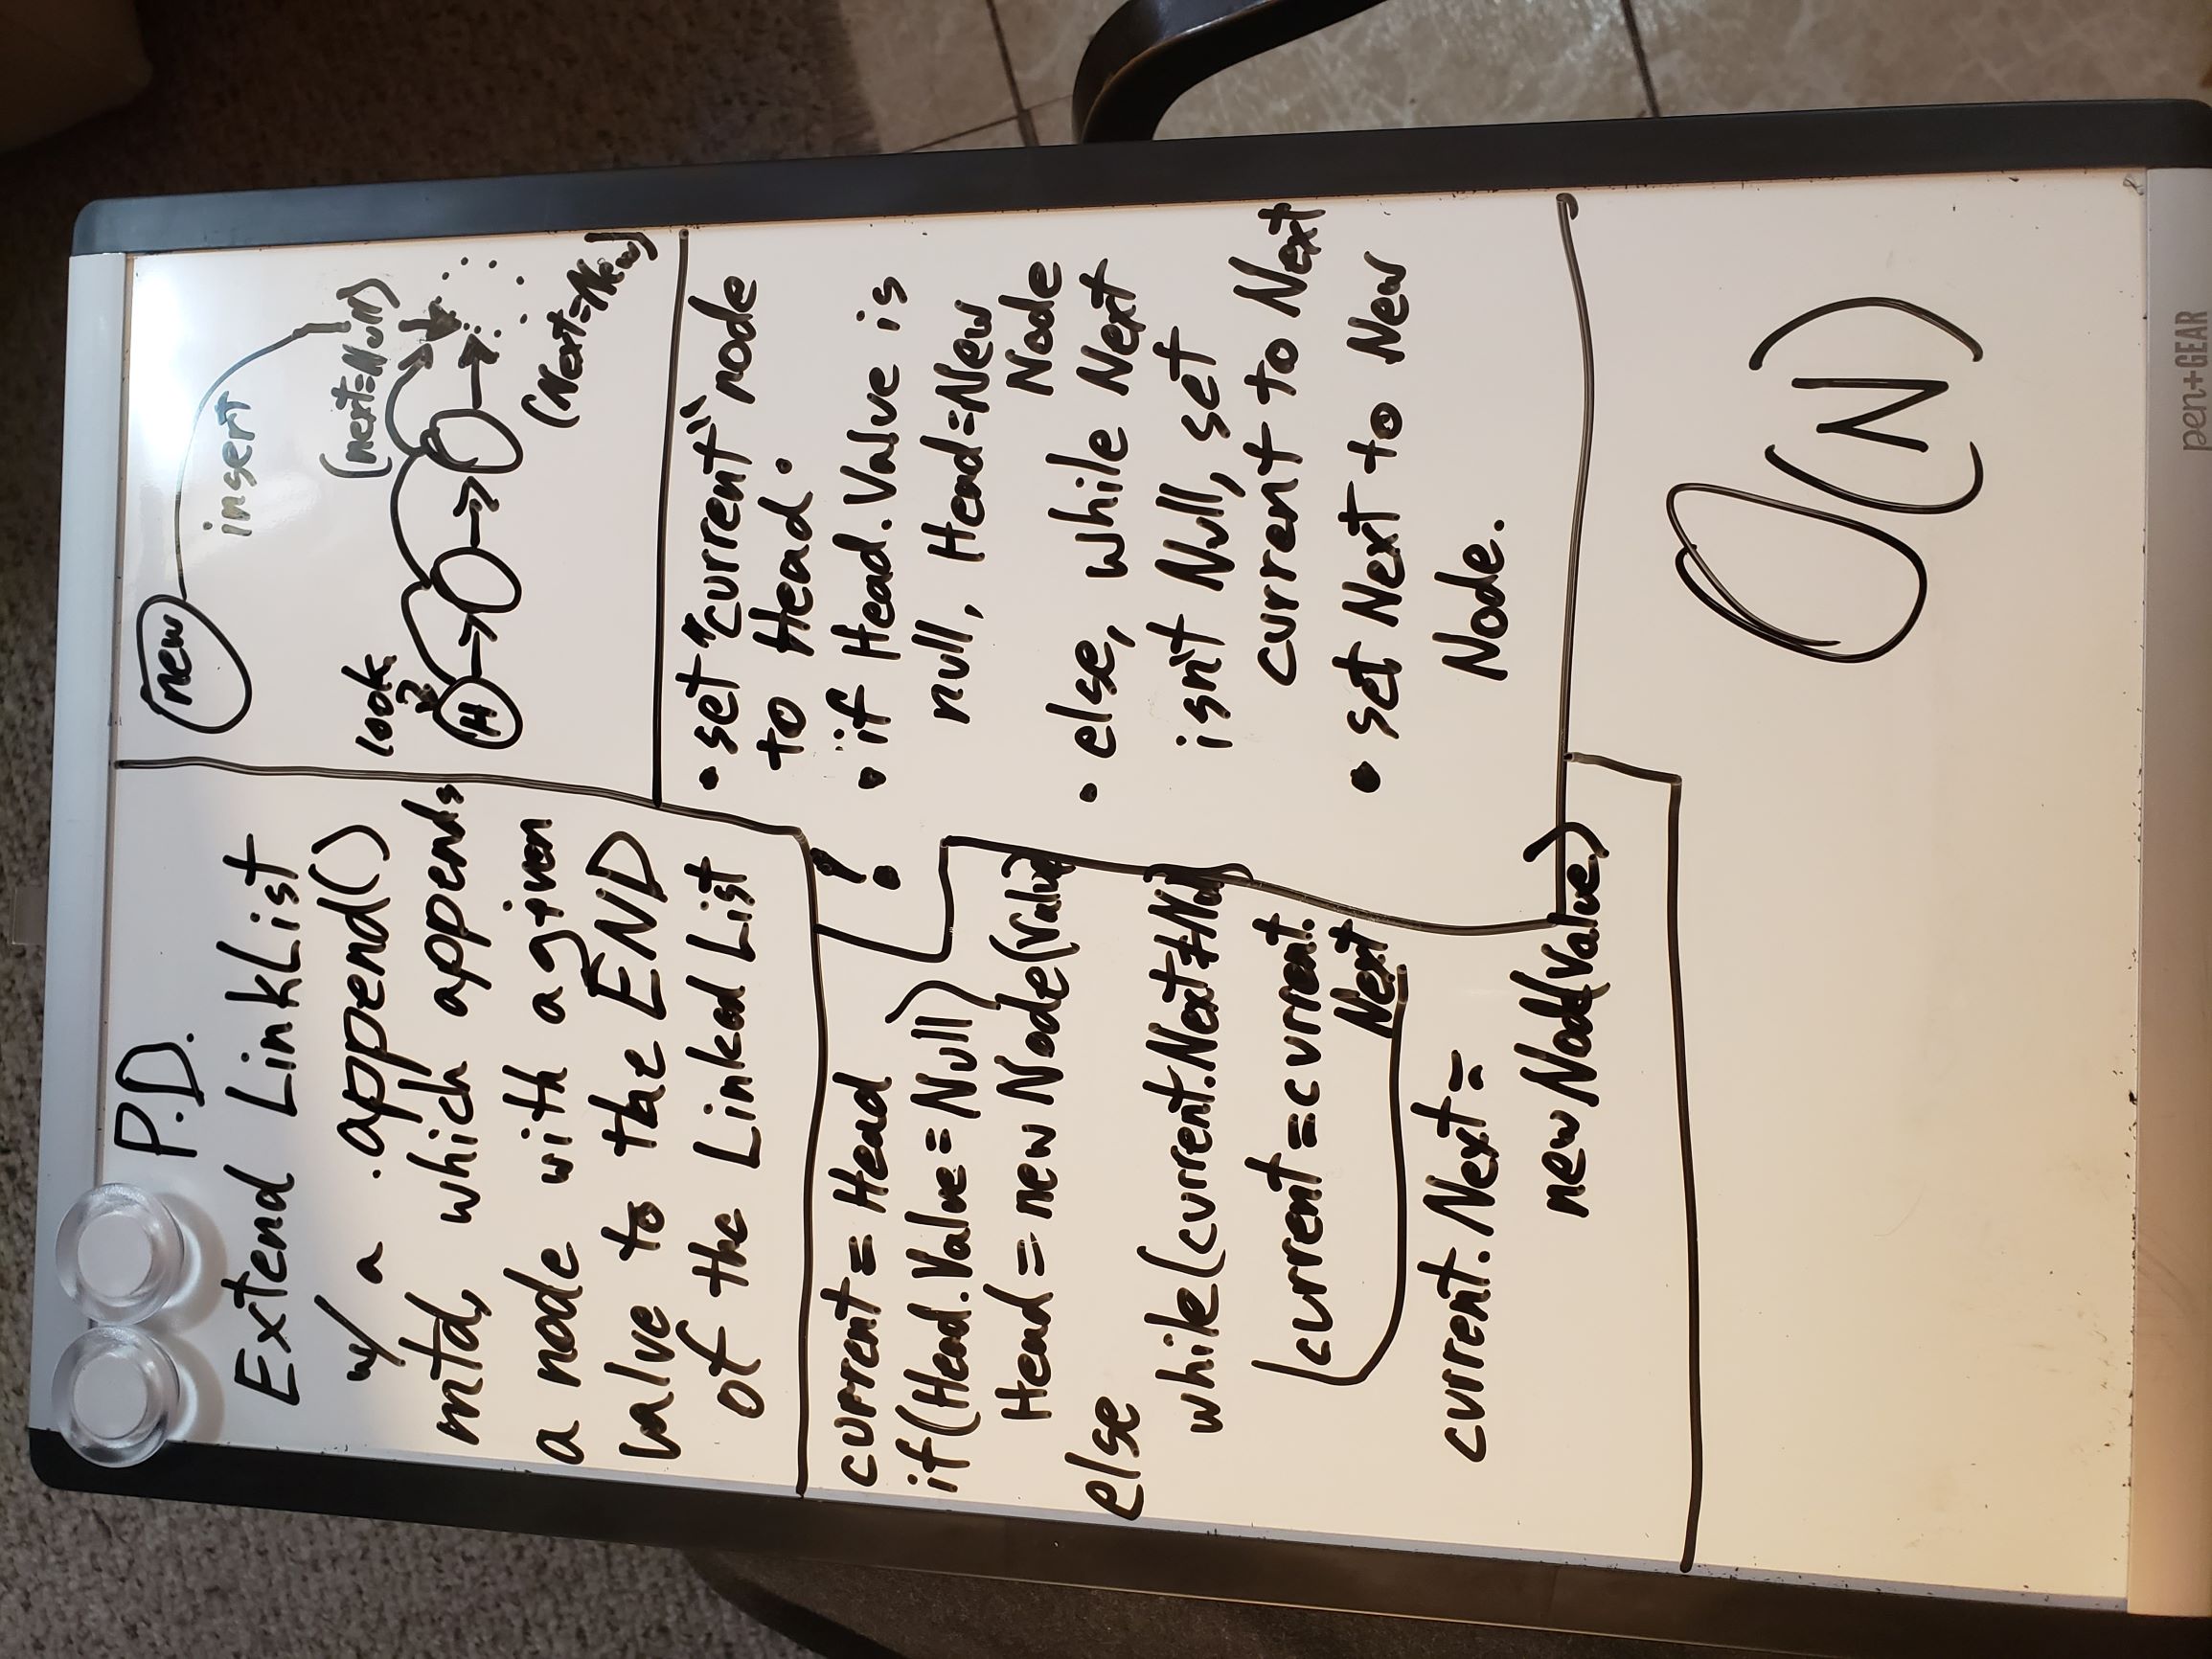 P.D.
Extend LinkList
w/ a .append()
mtd, which appends
a node with a given
value to the END
of the Linked List
new
insert
(next=Null)
look
H
(Next=New)
• set "current" node
to Head.
• if Head.Value is
null, Head=New
Node
• else, while Next
isn't Null, set
current to Next
• set Next to New
Node.
!
current = Head
if(Head.Value = Null)
Head = new Node(Value)
else
while(current.Next ≠ Null)
current = current.
Next
current.Next =
new Node(Value)
O(N)
pen+GEAR